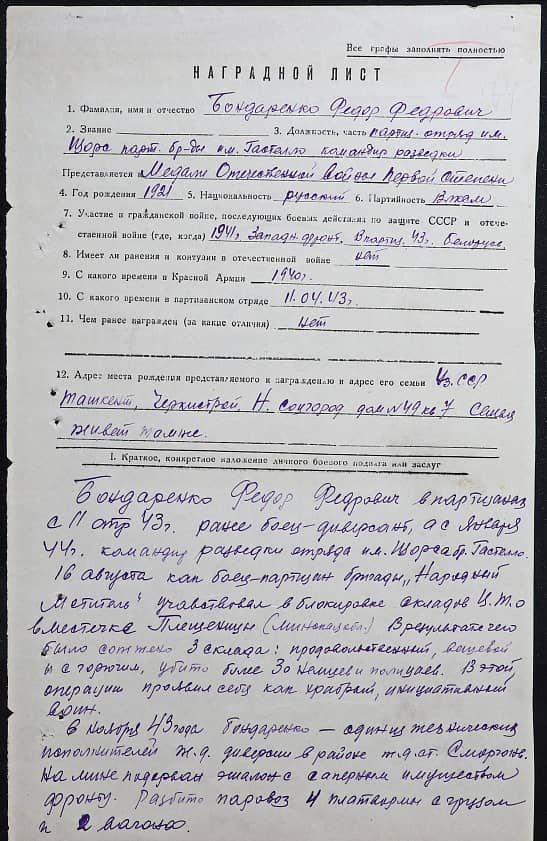 Все графы заполнять полностью
НАГРАДНОЙ ЛИСТ
1. Фамилия, имя и отчество Бондаренко Федор Федрович
2. Звание 3. Должность, часть партиз. отряд им.
Щорса парт. бр-ды им. Гастелло командир разведки
Представляется к Медали Отечественной Войны Первой Степени
4. Год рождения 1921 5. Национальность русский 6. Партийность Влксм
7. Участие в гражданской войне, последующих боевых действиях по защите СССР и отече-
ственной войне (где, когда) 1941г. Западн. фронт. В партиз. 43г. Белорусс.
8. Имеет ли ранения и контузии в отечественной войне нет
9. С какого времени в Красной Армии 1940г.
10. С какого времени в партизанском отряде 11.04.43г.
11. Чем ранее награжден (за какие отличия) нет
12. Адрес места рождения представляемого к награждению и адрес его семьи Уз.ССР
Ташкент, дом №49 кв 7 Семья
живет там же.
I. Краткое, конкретное изложение личного боевого подвига или заслуг
Бондаренко Федор Федрович в партизанах
с 11 апр 43г. ранее боец-диверсант, а с января
44г. командир разведки отряда им. Щорса бр. Гастелло.
16 августа как боец-партизан бригады „Народный
Меститель" учавствовал в блокировке складов Ц.Т.О
в местечке Плещеницы (Минской обл.) В результате чего
было сожжено 3 склада: продовольственный, вещевой
и с горючим, убито более 30 немцев и полицаев. В этой
операции проявил себя как храбрый, инициативный
воин.
6 ноября 43 года Бондаренко — один из технических
исполнителей ж.д. диверсии в районе ж.д.ст. Сморгонь.
На мине подорван эшалон с саперным имуществом
фронту. Разбито паровоз 4 платформы с грузом
и 2 вагона.